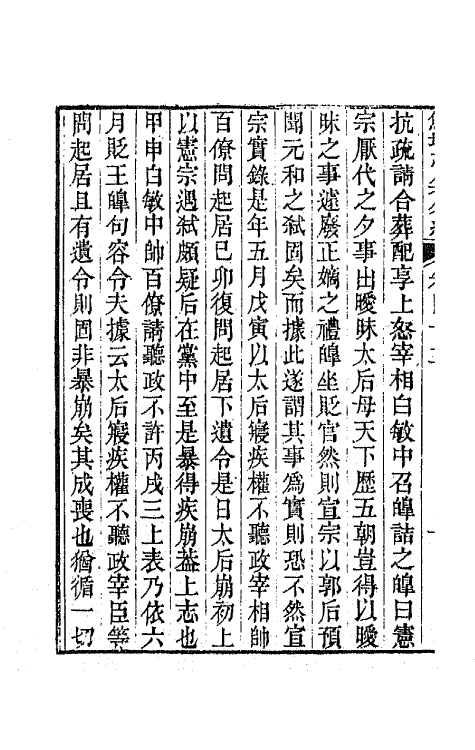 抗疏請合葬配享上怒宰相白敏中召皡詰之皡曰憲
宗厭代之夕事出曖昧太后母天下歷五朝豈得以曖
昧之事遽廢正嫡之禮皡坐貶官然則宣宗以郭后預
聞元和之弑固矣而據此遂謂其事爲實則恐不然宣
宗實錄是年五月戊寅以太后寢疾權不聽政宰相帥
百僚問起居已卯復問起居下遺令是日太后崩初上
以憲宗遇弑頗疑后在黨中至是暴得疾崩葢上志也
甲申白敏中帥百僚請聽政不許丙戌三上表乃依六
月貶王皡句容令夫據云太后寢疾權不聽政宰臣等
問起居且有遺令則固非暴崩矣其成喪也猶循一切